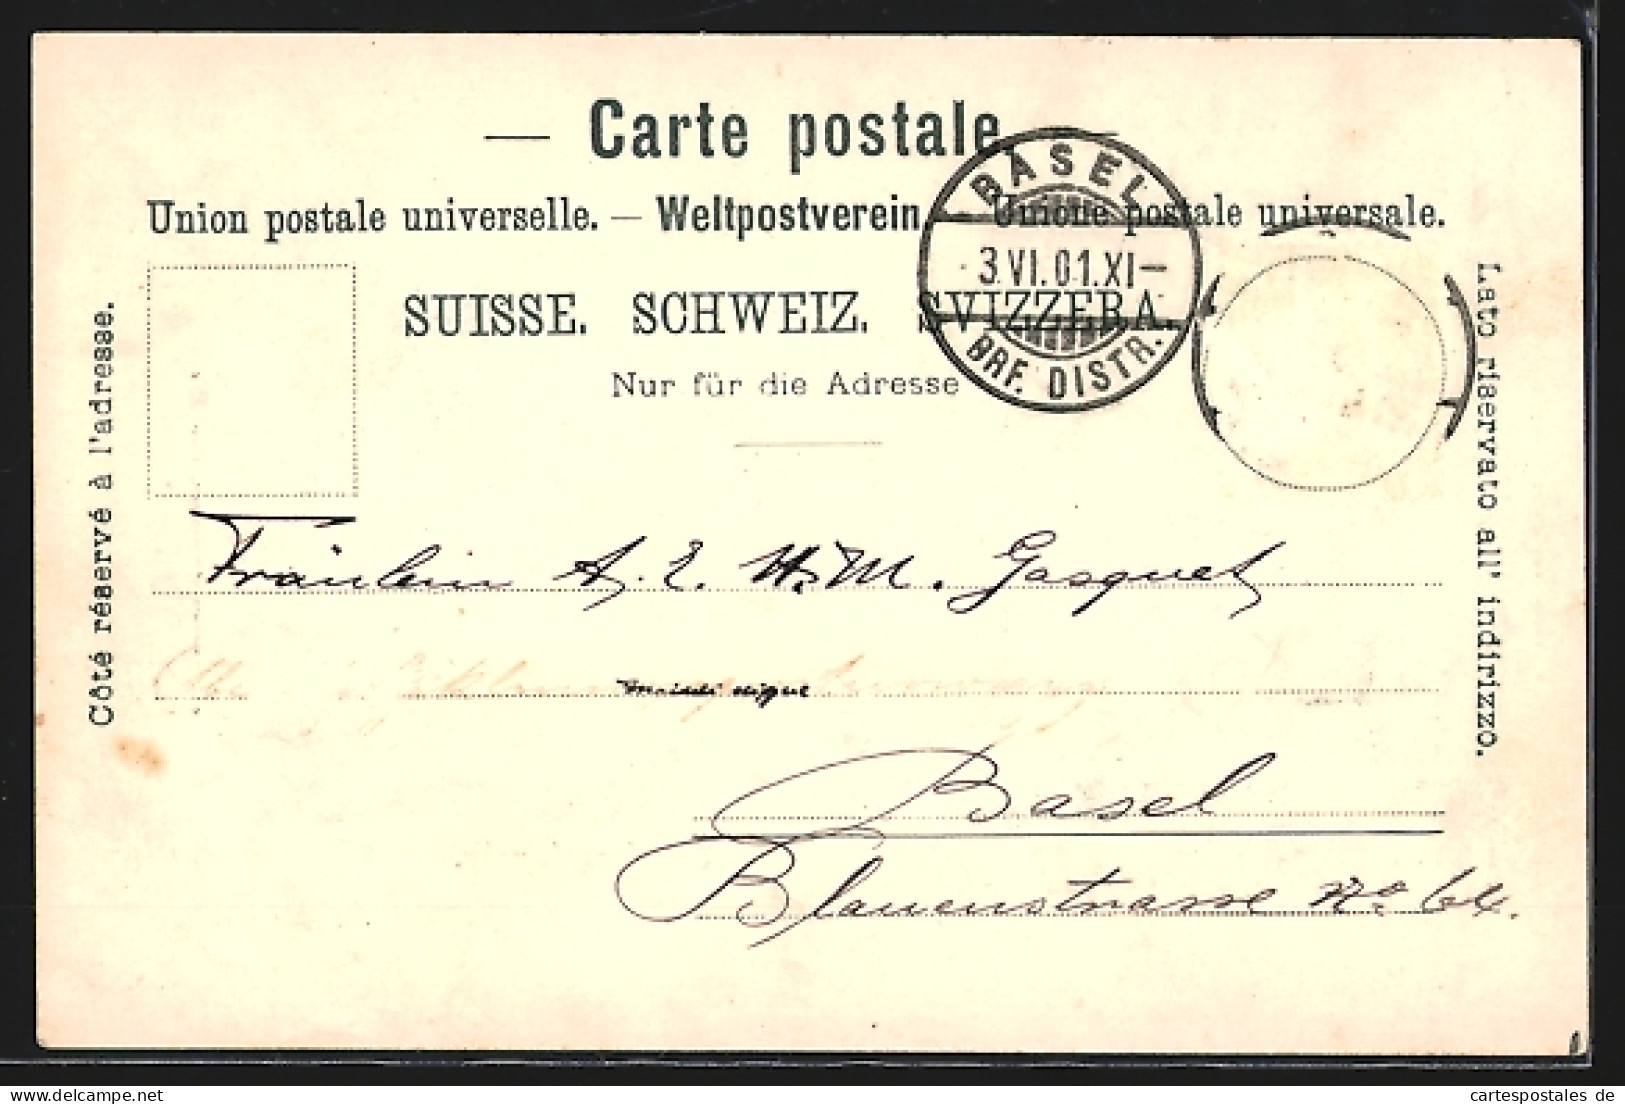 — Carte postale. —
Union postale universelle. — Weltpostverein. — Unione postale universale.
SUISSE. SCHWEIZ. SVIZZERA.
Nur für die Adresse
BASEL
3.VI.01.XI–
BRF. DISTR.
Côté réservé à l'adresse.
Lato riservato all' indirizzo.
Fräulein A. E. H. M. Gasquet
Basel
Blauenstrasse No 64.
delcampe.net
cartespostales de